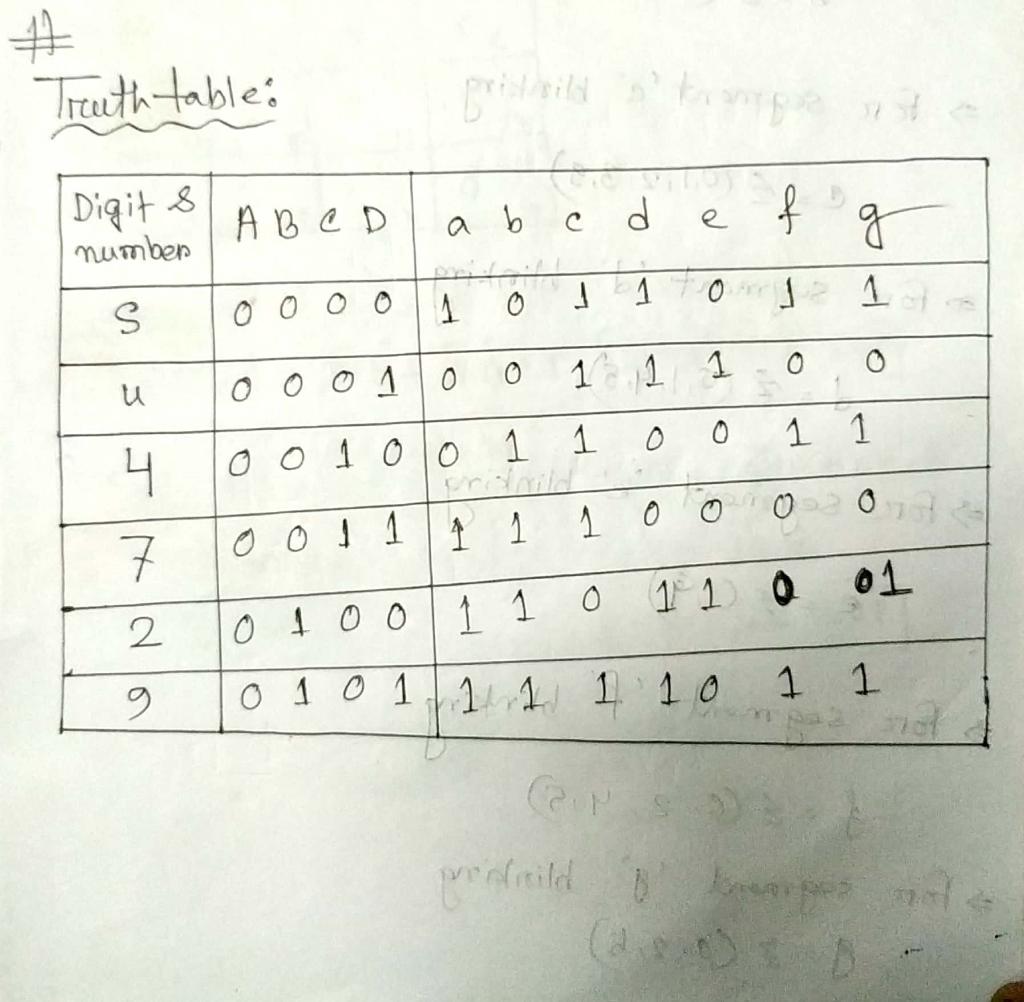 #
Truth table:
Digit & number A B C D a b c d e f g
S 0 0 0 0 1 0 1 1 0 1 1
u 0 0 0 1 0 0 1 1 1 0 0
4 0 0 1 0 0 1 1 0 0 1 1
7 0 0 1 1 1 1 1 0 0 0 0
2 0 1 0 0 1 1 0 1 1 0 01
9 0 1 0 1 1 1 1 1 0 1 1